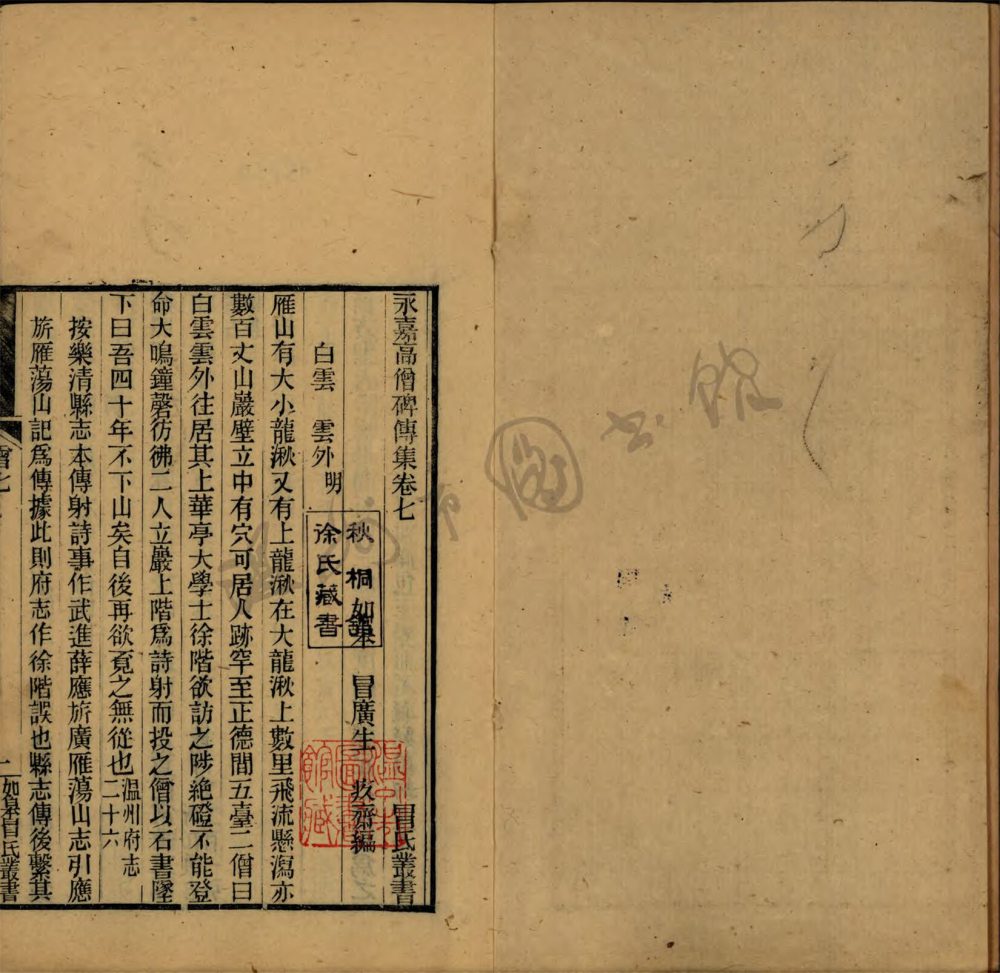 永嘉高僧碑傳集卷七
冒氏叢書
如皋 冒廣生 疚齋編
秋桐
徐氏藏書
白雲 雲外 明
雁山有大小龍湫又有上龍湫在大龍湫上數里飛流懸瀉亦
數百丈山巖壁立中有穴可居人跡罕至正德間五臺二僧曰
白雲雲外往居其上華亭大學士徐階欲訪之陟絕磴不能登
命大鳴鐘磬彷彿二人立巖上階爲詩射而投之僧以石書墜
下曰吾四十年不下山矣自後再欲覓之無從也温州府志二十六
按樂清縣志本傳射詩事作武進薛應旂廣雁蕩山志引應
旂雁蕩山記爲傳據此則府志作徐階誤也縣志傳後繫其
一
如皋冒氏叢書
圖書館